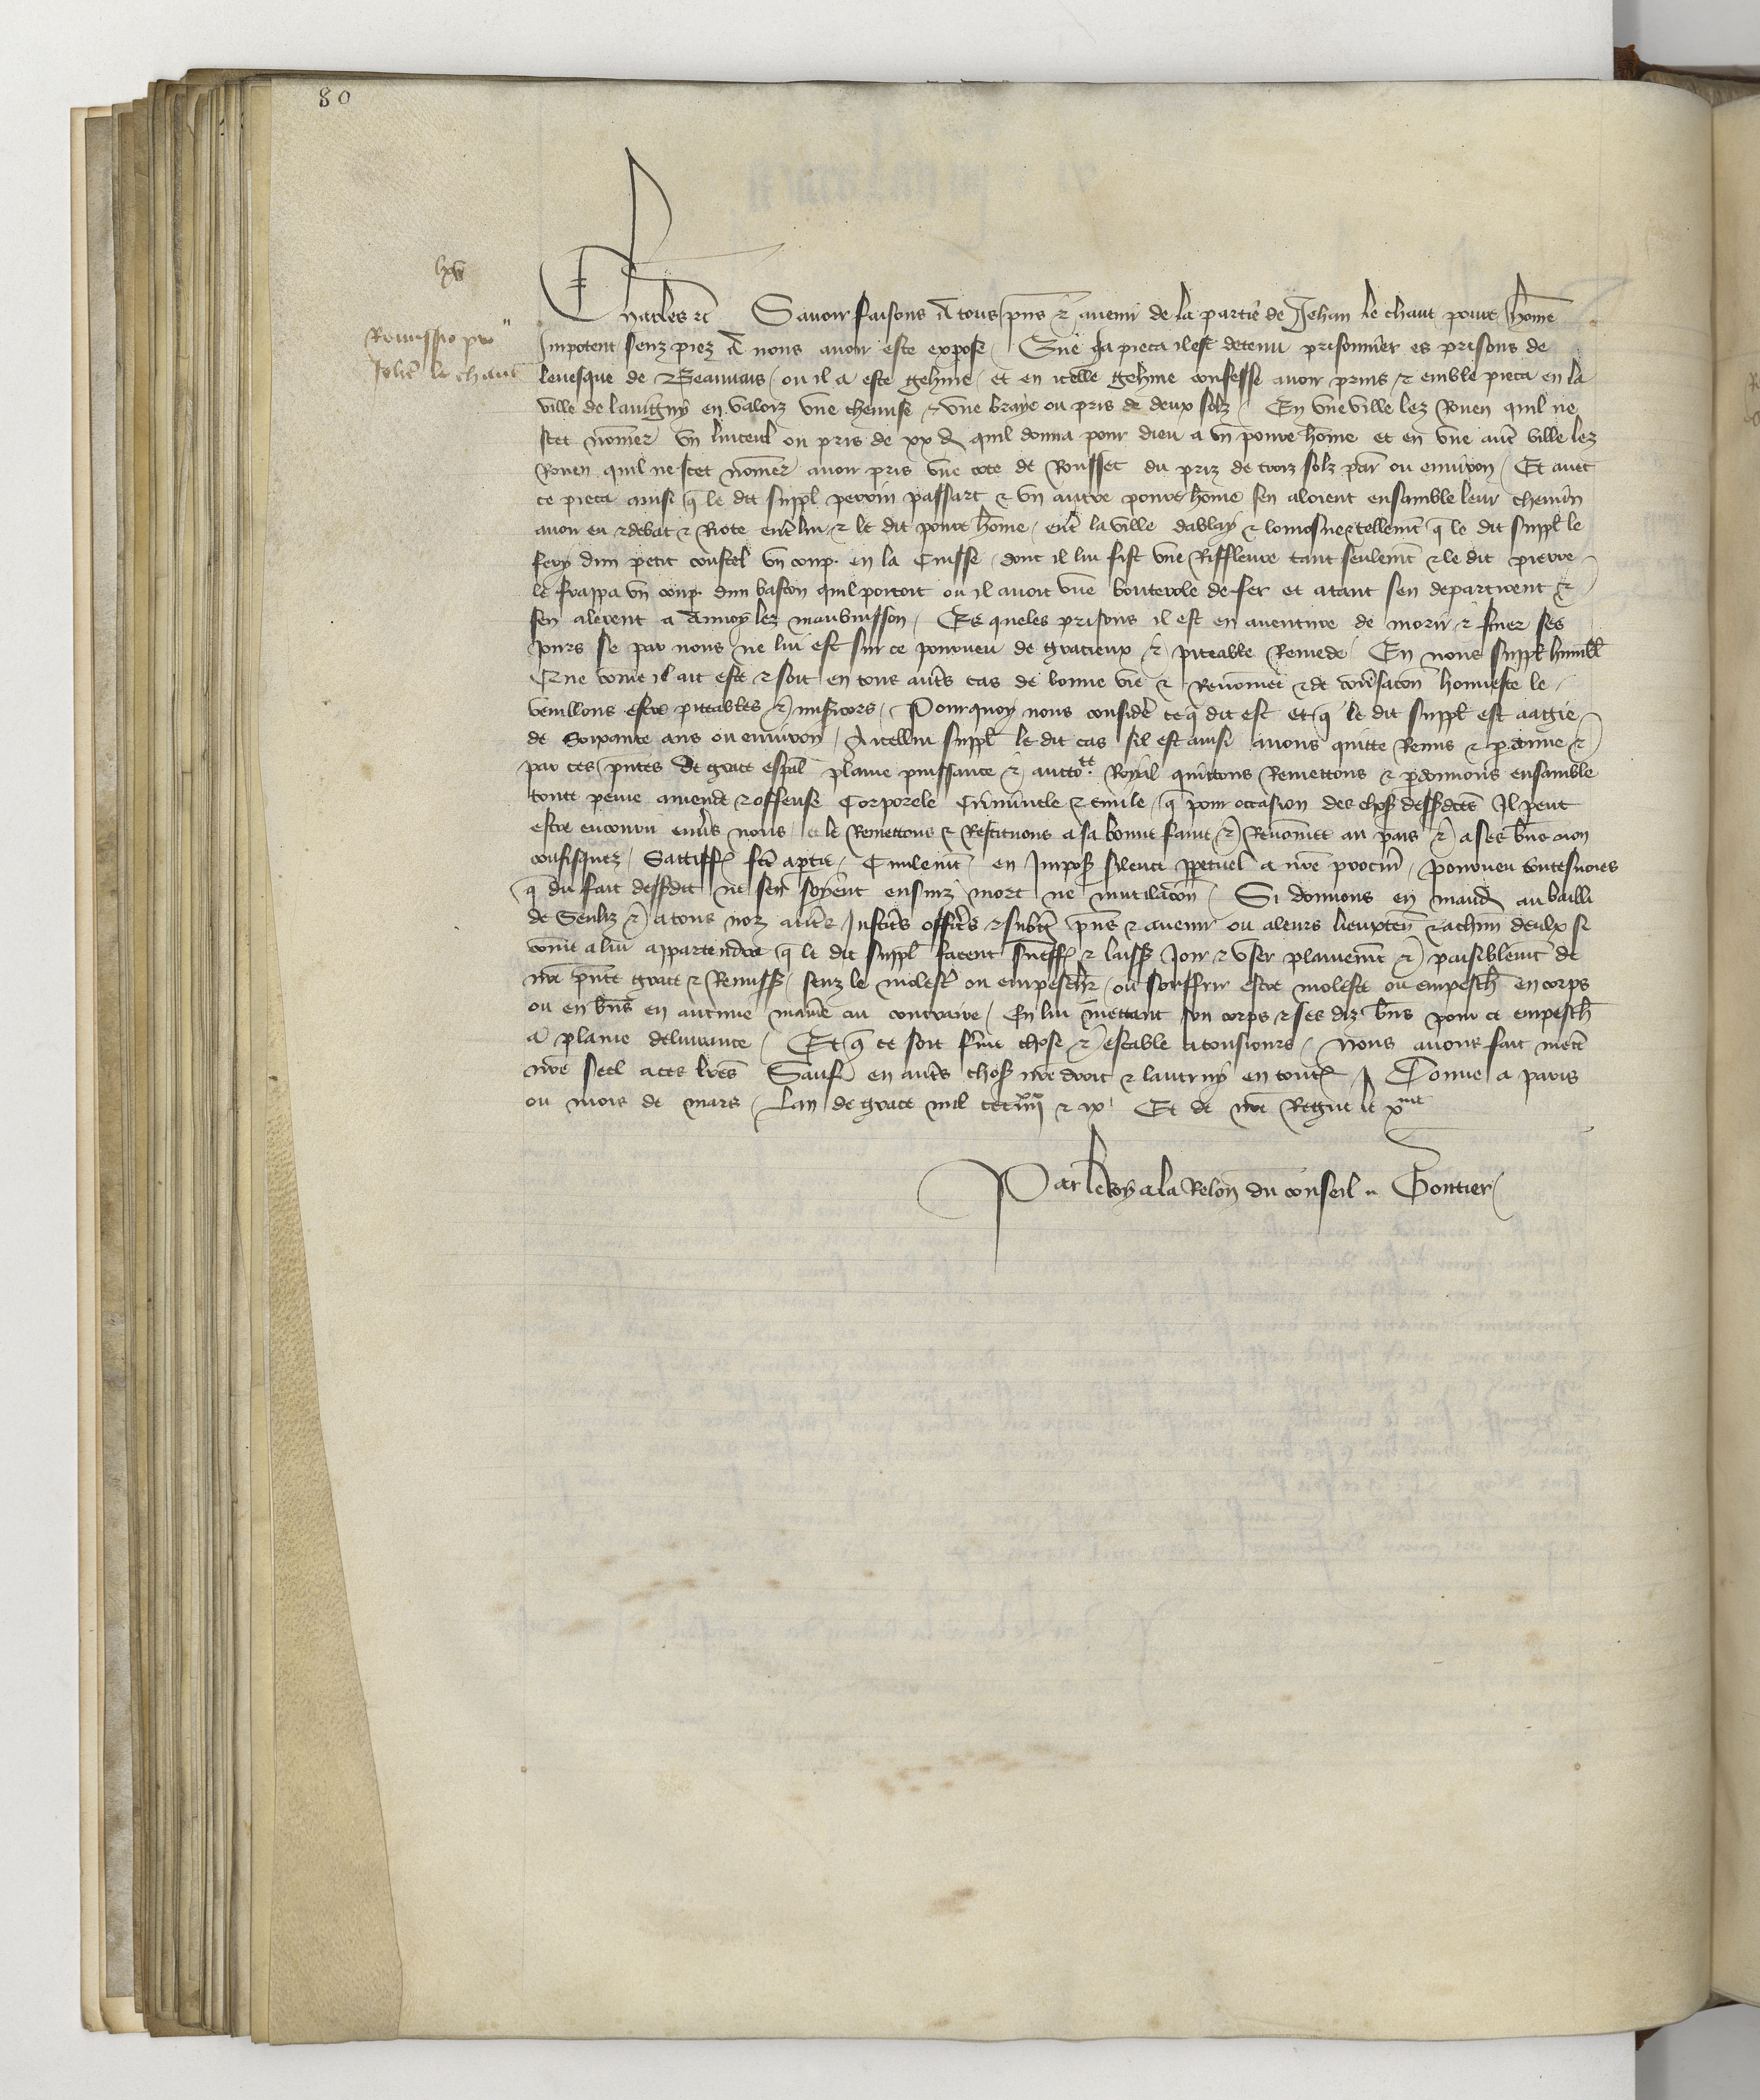 80
lxv
Remissio pro
Johe le chaut
Charles etc Savoir faisons A tous pns et avenir de la partie de Jehan le chaut povre home
Impotent senz piez A nous avoir este expose Que ja pieca il est detenu prisonnier es prisons de
levesque de Beauvais ou il a este gehine et en icelle gehine confesse avoir prins et emble pieca en la
ville de lavigny en valoiz une chemise et une braye ou pris de deux solz En une ville lez Rouen quil ne
scet nomer un linceul ou pris de xx d quil donna pour dieu a un povre home et en une aut ville lez
Rouen quil ne scet nomer avoir pris une cote de Rousset du priz de troiz solz par ou environ Et avec
ce pieca ainsi q le dit suppl perrin passart et un autre povre home sen aloient ensamble leur chemin
avoir eu debat et Riote entre lui et le dit povre home ent la ville dablay et lomosne tellemt q le dit suppl le
fery dun petit coustel un coup en la Cuisse dont il lui fist une Riffleure tant seulemt et le dit pierre
le frappa un coup dun baston quil portoit ou il avoit une bouterole de fer et atant sen departirent et
sen alerent a Aunoy lez maubuisson Es queles prisons il est en aventure de morir et finer ses
jours se par nous ne lui est sur ce pourveu de gracieux et piteable Remede En nous suppl humbll
Que come il ait este et soit en tous auts cas de bonne vie et Renomee et de conversacon honneste le
veuillons estre piteables et misicors Pourquoy nous considere ce q dit est et q le dit suppl est aagie
de Soixante ans ou environ A icellui suppl le dit cas sil est ainsi avons quitte Remis et pdonne et
par ces pntes de grace espal plaine puissance et auctote Royal quittons Remettons et pdonnons ensamble
toute peine amende et offense Corporele Criminele et Civile q pour occasion des chos dessdctes Il peut
estre encouru envs nous et le Remettons et Restituons a sa bonne fame et Renomee au pais et a ses bns non
confisquez Sattiff fce a partie Civilemt en Impos silence ppetuel a nre procur pourveu toutesvoies
q du fait dessdit ne sen soyent ensuiz mort ne mutilacon Si donnons en mand au bailli
de Senliz et a tous noz auts Justics officrs et subtz pns et avenir ou a leurs lieuxten et a chun deulx si
come a lui appartendra q le dit suppl facent sueff et laiss Joir et user plainemt et paisiblemt de
nre pnte grace et Remiss senz le molest ou empeschr ou souffrir estre moleste ou empesch en corps
ou en bns en aucune manie au contraire En lui mettant son corps et ses diz bns pour ce empesch
a plaine delivrance Et q ce soit ferme chose et estable a tousjours Nous avons fait mett
nre seel a ces lres Sauf en auts chos nre droit et lautruy en toutes Donne a paris
ou mois de mars Lan de grace mil ccciiiixx et ix Et de nre Regne le xme
Par le Roy a la Relon du conseil Gontier